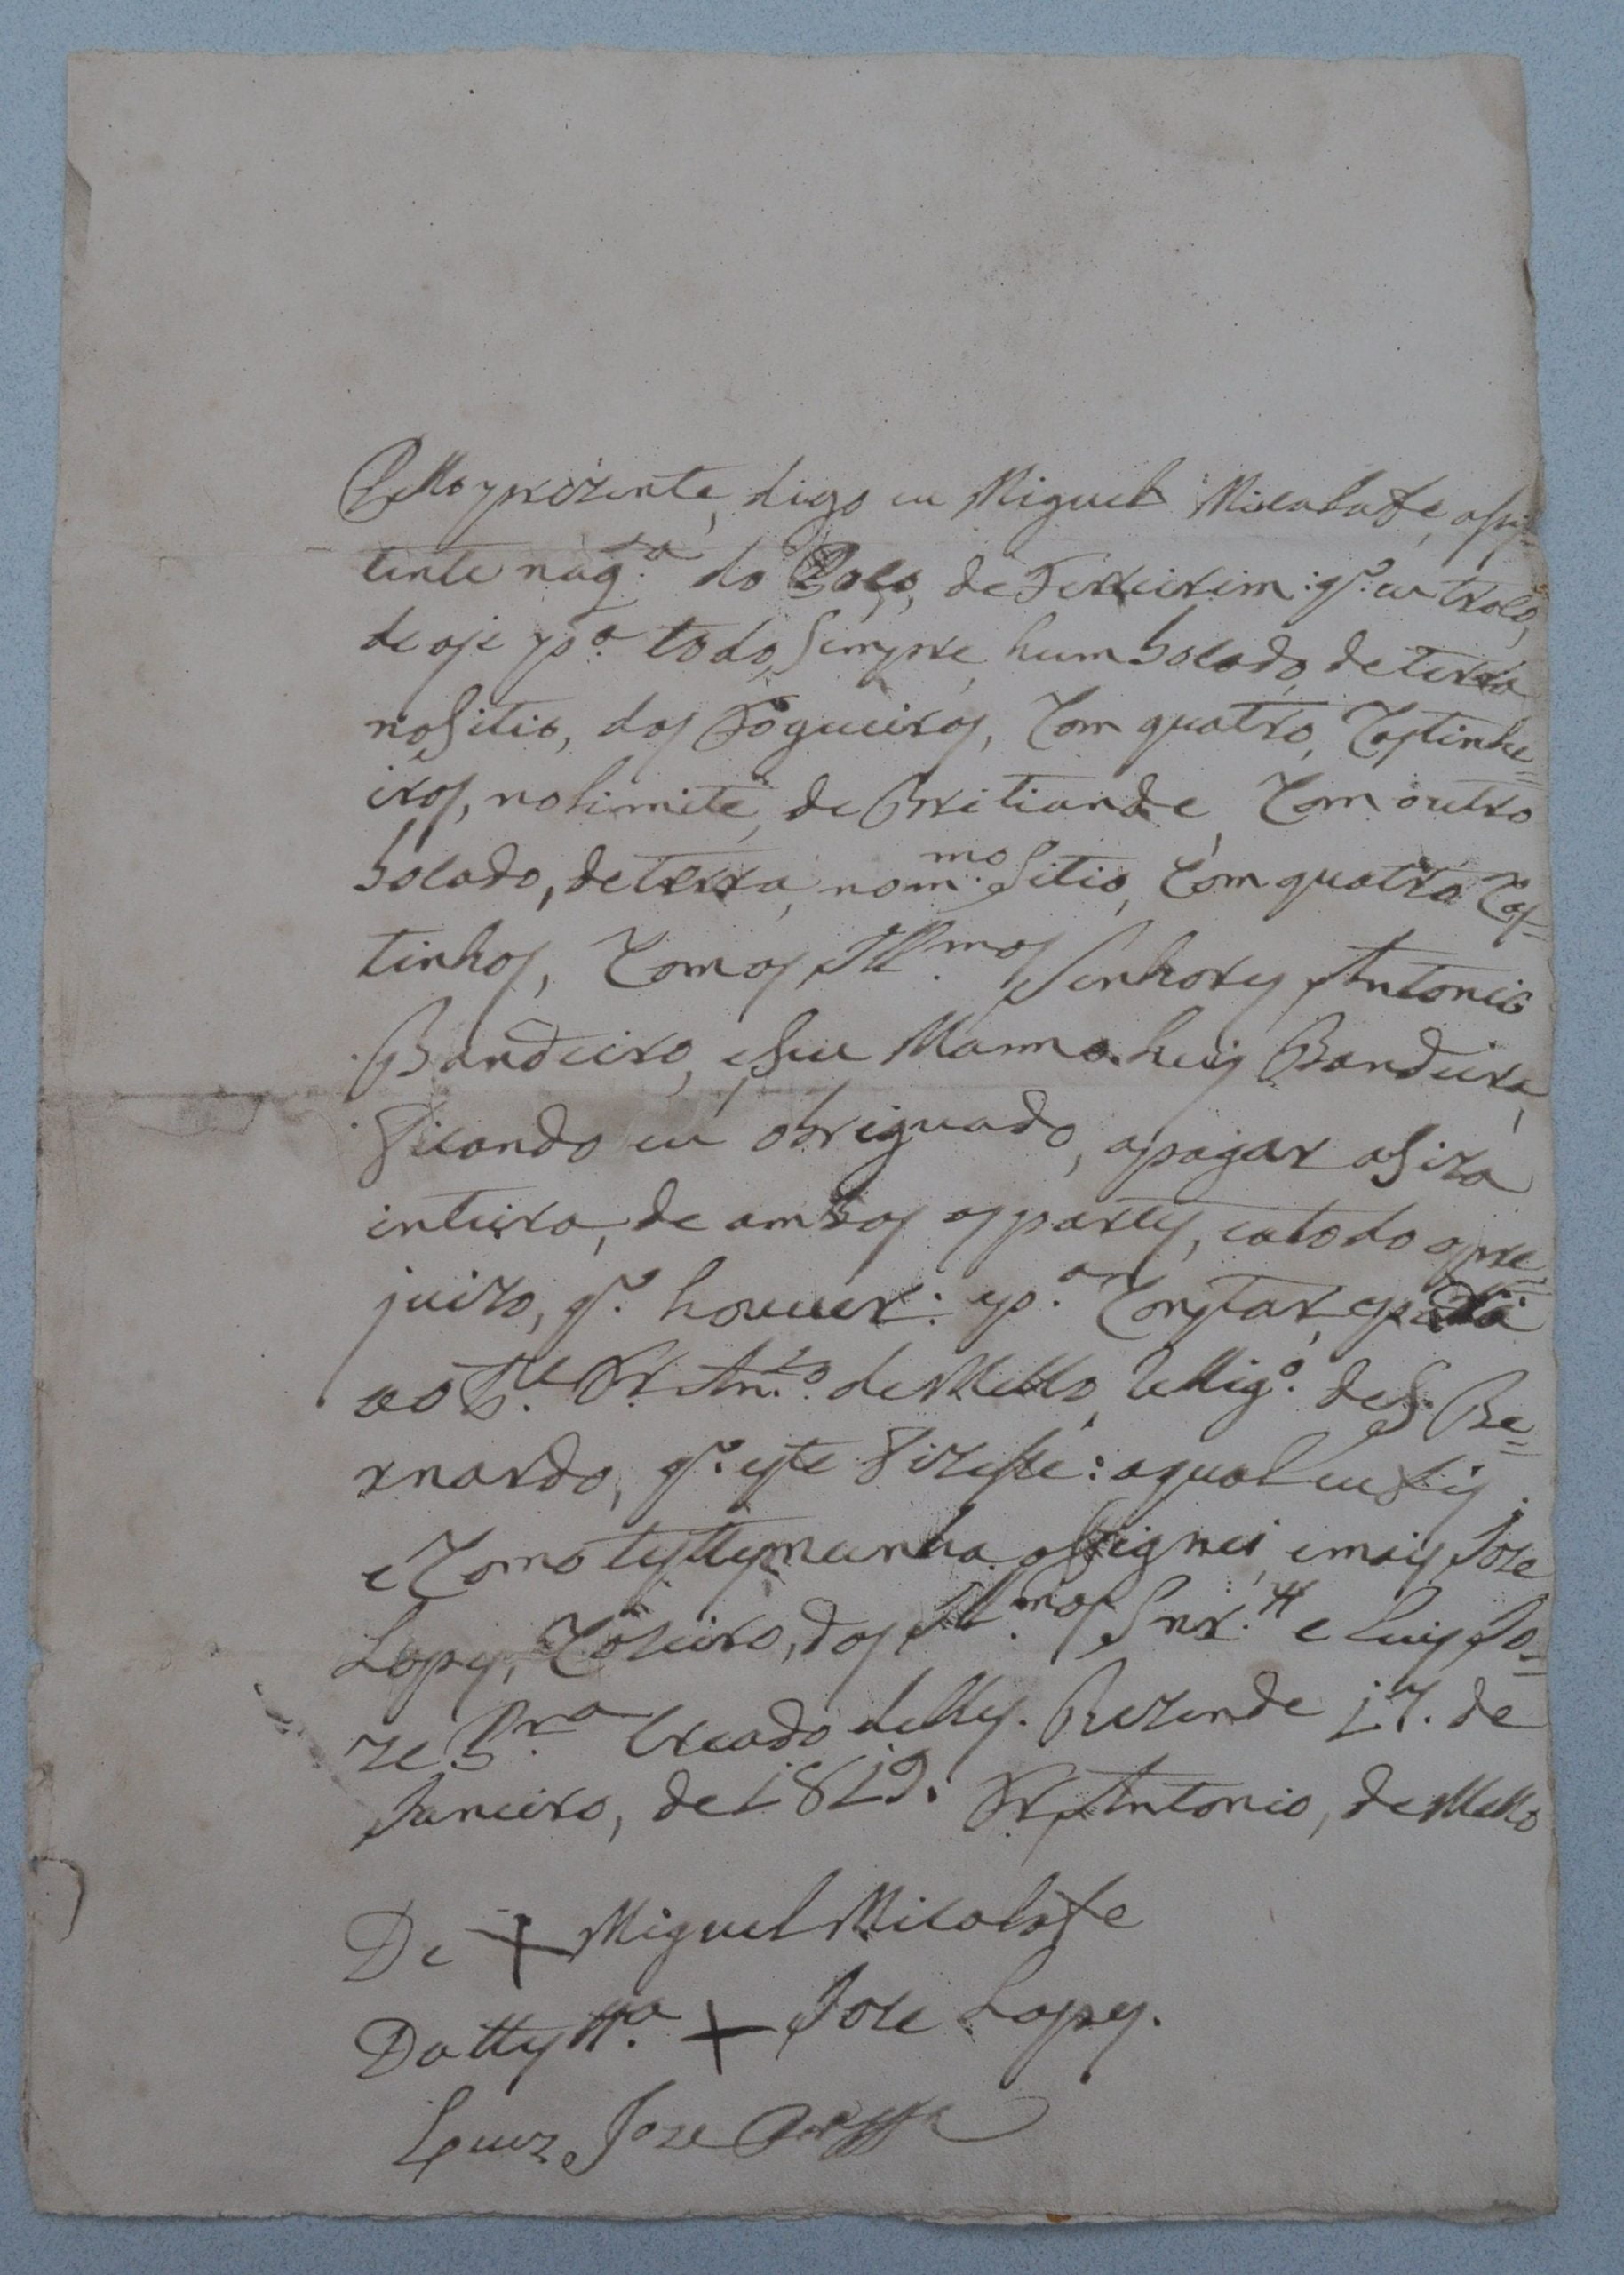 Pello prizente, digo eu Miguel Micalafe, asis-
tente na q.ta do Poço, de Ferreirim: q.e eu troco,
de oje p.a todo, sempre, hum bocado, de terra
no sitio, dos Fogueiros, Com quatro, Castinhe=
iros, no limite, de Britiande, Com outro
bocado, de terra, no m.mo sitio, Com quatro Cas=
tinhos, Com os Ill.mos Senhores Antonio
Bandeira, e seu Manno Luis Bandeira,
Ficando eu obriguado, a pagar a siza
inteira, de ambas as partes, e a todo o pre=
juizo, q.e houver: e p.a Constar, pedi
ao P.e Fr. An.to de Mello, Rellig.o de S. Be=
rnardo, q.e este Fizesse: a qual eu Fis
e Como testtemunha assignei, e mais Joze
Lopes, Cazeiro, dos Ill.mos Snr.es e Luis Jo=
ze Pr.a Creado delles. Rezende 17. de
Janeiro, de 1819. Fr. Antonio, de Mello
De + Miguel Micalafe
Da ttes.tta + Joze Lopes.
Louiz Joze